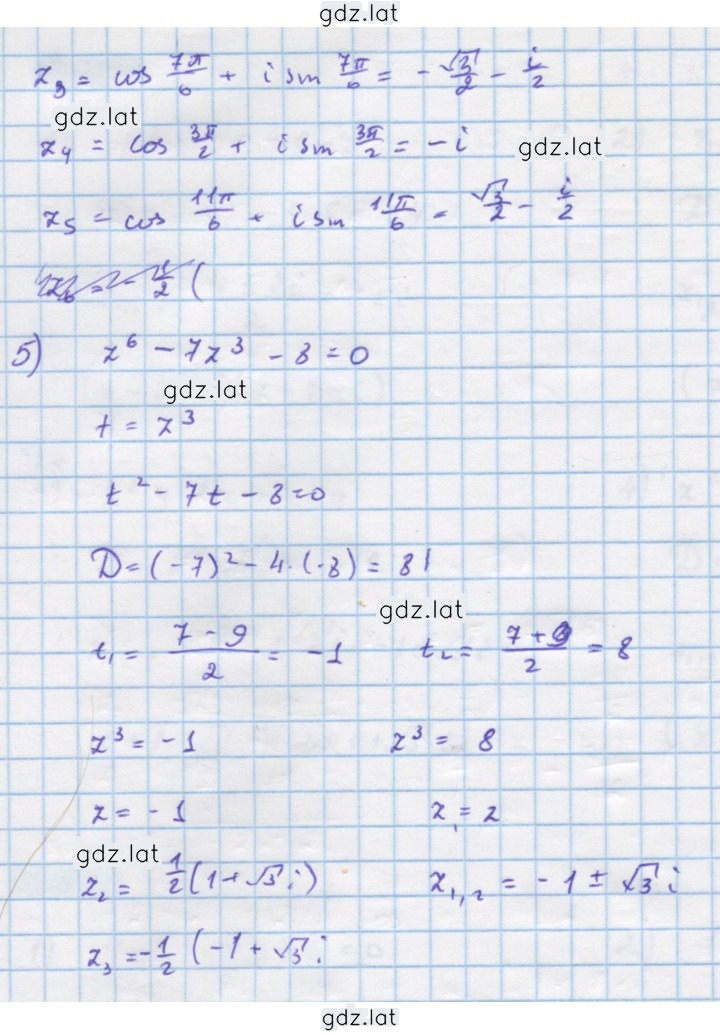 gdz.lat
z₃ = cos 7π/6 + i sin 7π/6 = - √3/2 - i/2
gdz.lat
z₄ = cos 3π/2 + i sin 3π/2 = - i
gdz.lat
z₅ = cos 11π/6 + i sin 11π/6 = √3/2 - i/2
5) z⁶ - 7z³ - 8 = 0
gdz.lat
t = z³
t² - 7t - 8 = 0
D = (-7)² - 4·(-8) = 81
gdz.lat
t₁ = (7 - 9)/2 = -1 t₂ = (7 + 9)/2 = 8
z³ = -1 z³ = 8
z = -1 z₁ = 2
gdz.lat
z₂ = 1/2 (1 + √3 i) z₁,₂ = -1 ± √3 i
z₃ = -1/2 (-1 + √3 i
gdz.lat